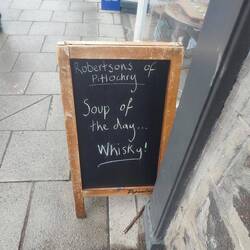 Robertsons of
Pitlochry
Soup of
the day...
Whisky!